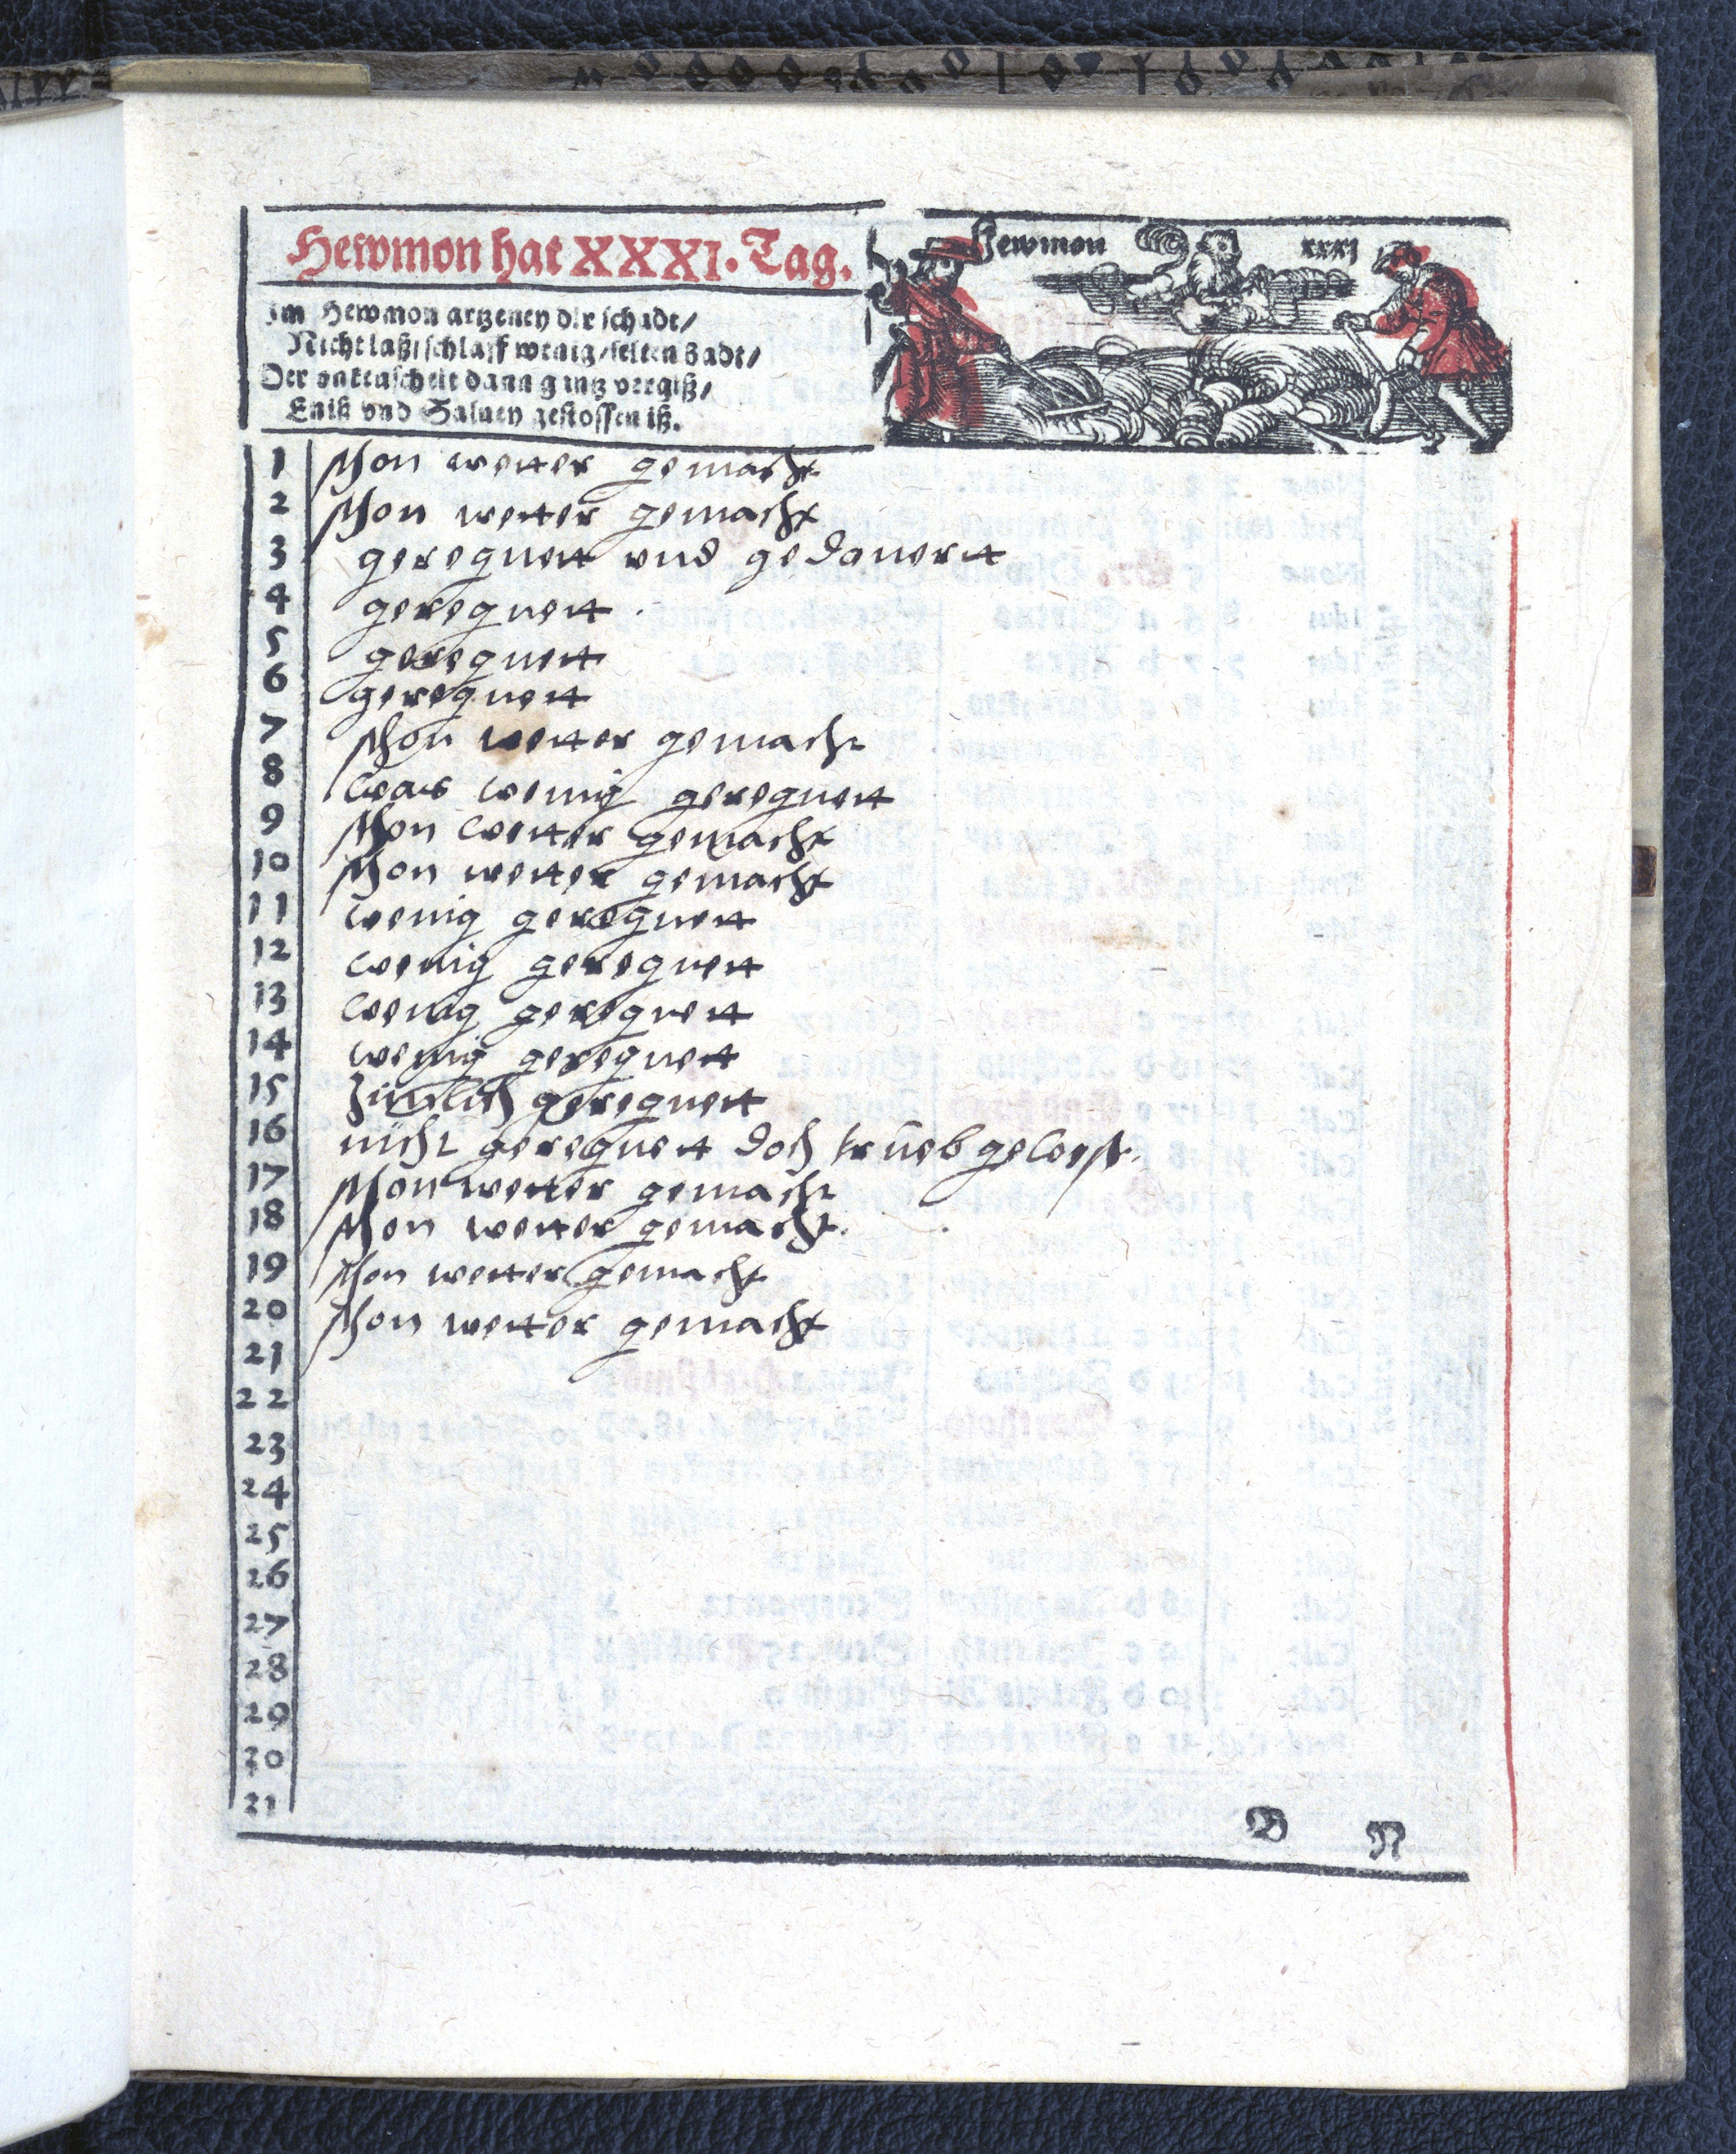 Hewmon hat XXXI. Tag.
Hewmon xxxj
Im Hewmon artzeney dir schadt/
Nicht laß/schlaff wenig/selten Badt/
Der vnkeuscheit dann gantz vergiß/
Eniß vnd Saluey gestossen iß.
1 schon wetter gemacht
2 schon wetter gemacht
3 geregnett vnd gedonertt
4 geregnett.
5 geregnett
6 geregnett
7 schon wetter gemacht
8 wenig geregnett
9 schon wetter gemacht
10 schon wetter gemacht
11 wenig geregnett
12 wenig geregnett
13 wenig geregnett
14 wenig geregnett
15 Zimlich geregnett
16 nicht geregnett doch trüeb gewest.
17 schon wetter gemacht
18 schon wetter gemacht.
19 schon wetter gemacht
20 schon wetter gemacht
21
22
23
24
25
26
27
28
29
30
31
B N